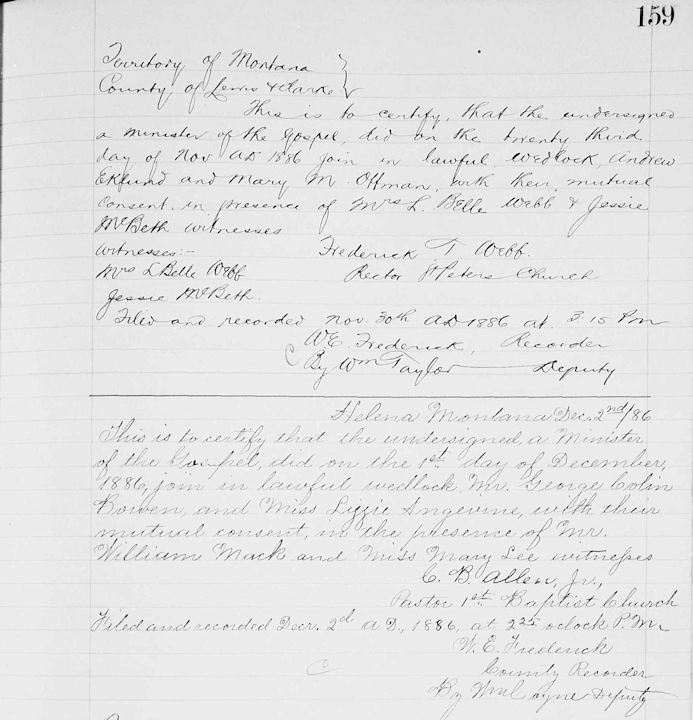 159
Territory of Montana
County of Lewis & Clarke
This is to certify, that the undersigned
a minister of the Gospel, did on the twenty third
day of Nov AD 1886 join in lawful wedlock, Andrew
Eklund and Mary M. Offman, with their mutual
consent, in presence of Mrs L. Belle Webb & Jessie
McBeth witnesses
Witnesses:- Frederick T Webb.
Mrs L Belle Webb Rector St Peters Church
Jessie McBeth.
Filed and recorded Nov. 30th AD 1886 at 3.15 Pm
W.E. Frederick, Recorder
C By Wm Taylor Deputy
Helena Montana Dec. 2nd/86
This is to certify that the undersigned, a Minister
of the Gospel, did on the 1st day of December,
1886, join in lawful wedlock, Mr. George Colin
Bowen, and Miss Lizzie Angevine, with their
mutual consent, in the presence of Mr.
William Mack and Miss Mary Lee witnesses
C. B. Allen, Jr.,
Pastor 1st Baptist Church
Filed and recorded Decr. 2d A.D., 1886, at 2 25 oclock P.M
W. E. Frederick
C County Recorder
By Deputy